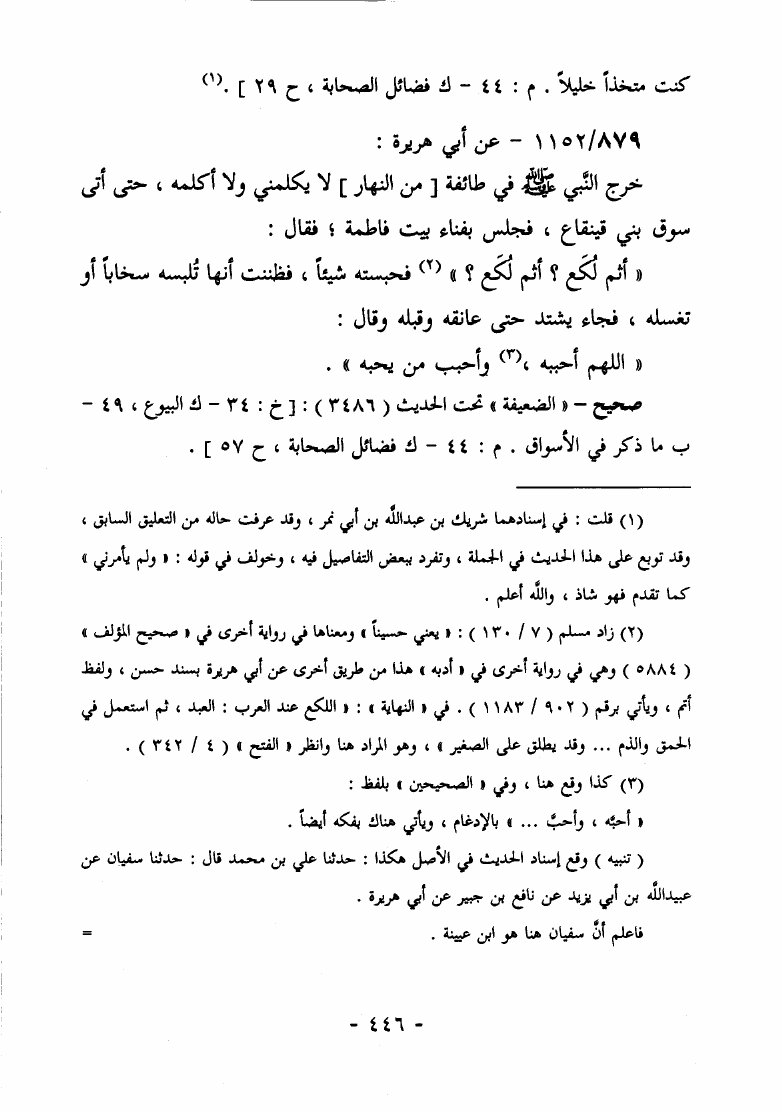 كنت متخذاً خليلاً . م : ٤٤ - ك فضائل الصحابة ، ح ٢٩ ] .(١)
١١٥٢/٨٧٩ - عن أبي هريرة :
خرج النَّبي ﷺ في طائفة [ من النهار ] لا يكلمني ولا أكلمه ، حتى أتى
سوق بني قينقاع ، فجلس بفناء بيت فاطمة ؛ فقال :
« أثم لُكَع ؟ أثم لُكَع ؟ » (٢) فحبسته شيئاً ، فظننت أنها تُلبسه سخاباً أو
تغسله ، فجاء يشتد حتى عانقه وقبله وقال :
« اللهم أحببه ،(٣) وأحبب من يحبه » .
صحيح – « الضعيفة » تحت الحديث ( ٣٤٨٦ ) : [ خ : ٣٤ - ك البيوع ، ٤٩ -
ب ما ذكر في الأسواق . م : ٤٤ - ك فضائل الصحابة ، ح ٥٧ ] .
(١) قلت : في إسنادهما شريك بن عبدالله بن أبي نمر ، وقد عرفت حاله من التعليق السابق ،
وقد توبع على هذا الحديث في الجملة ، وتفرد ببعض التفاصيل فيه ، وخولف في قوله : « ولم يأمرني »
كما تقدم فهو شاذ ، والله أعلم .
(٢) زاد مسلم ( ٧ / ١٣٠ ) : « يعني حسيناً » ومعناها في رواية أخرى في « صحيح المؤلف »
( ٥٨٨٤ ) وهي في رواية أخرى في « أدبه » هذا من طريق أخرى عن أبي هريرة بسند حسن ، ولفظ
أتم ، ويأتي برقم ( ٩٠٢ / ١١٨٣ ) . في « النهاية » : « اللكع عند العرب : العبد ، ثم استعمل في
الحمق والذم ... وقد يطلق على الصغير » ، وهو المراد هنا وانظر « الفتح » ( ٤ / ٣٤٢ ) .
(٣) كذا وقع هنا ، وفي « الصحيحين » بلفظ :
« أحبَّه ، وأحبَّ ... » بالإدغام ، ويأتي هناك بفكه أيضاً .
( تنبيه ) وقع إسناد الحديث في الأصل هكذا : حدثنا علي بن محمد قال : حدثنا سفيان عن
عبيدالله بن أبي يزيد عن نافع بن جبير عن أبي هريرة .
فاعلم أنَّ سفيان هنا هو ابن عيينة . =
- ٤٤٦ -